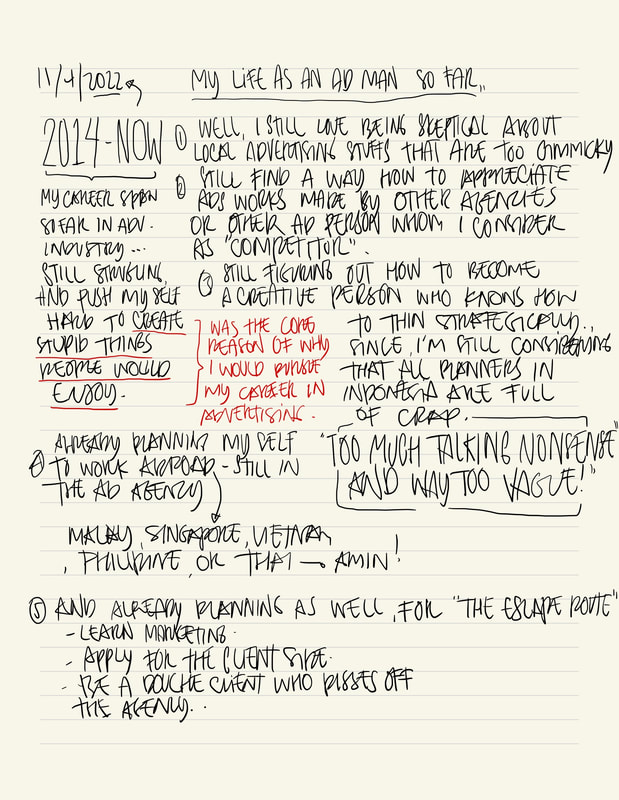 11/4/2022
MY LIFE AS AN AD MAN SO FAR..
2014-NOW
MY CAREER SPAN
SO FAR IN ADV.
INDUSTRY...
STILL STRUGLING,
AND PUSH MY SELF
HARD TO CREATE
STUPID THINGS
PEOPLE WOULD
ENJOY.
WAS THE CORE
REASON OF WHY
I WOULD PURSUE
MY CAREER IN
ADVERTISING.
① WELL, I STILL LOVE BEING SKEPTICAL ABOUT
LOCAL ADVERTISING STUFFS THAT ARE TOO GIMMICKY
② STILL FIND A WAY HOW TO APPRECIATE
ADS WORKS MADE BY OTHER AGENCIES
OR OTHER AD PERSON WHOM I CONSIDER
AS "COMPETITOR".
③ STILL FIGURING OUT HOW TO BECOME
A CREATIVE PERSON WHO KNOWS HOW
TO THIN STRATEGICALLY..
SINCE, I'M STILL CONSIDERING
THAT ALL PLANNERS IN
INDONESIA ARE FULL
OF CRAP.
"TOO MUCH TALKING NONSENSE
AND WAY TOO VAGUE!"
④ ALREADY PLANNING MY SELF
TO WORK ABROAD - STILL IN
THE AD AGENCY
MALAY, SINGAPORE, VIETNAM
, PHILIPINE, OR THAI — AMIN!
⑤ AND ALREADY PLANNING AS WELL, FOR "THE ESCAPE ROUTE"
- LEARN MARKETING.
- APPLY FOR THE CLIENT SIDE.
- BE A DOUCHE CLIENT WHO PISSES OFF
THE AGENCY..